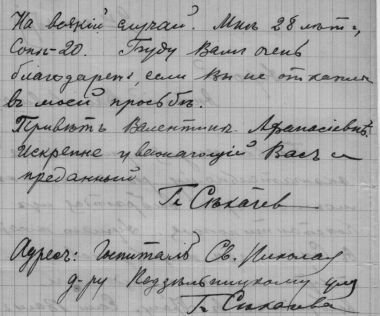 На всякій случай. Мнѣ 28 лѣтъ,
Сонѣ-20. Буду Вамъ очень
благодаренъ, если Вы не откажете
въ моей просьбѣ.
Привѣтъ Валентинѣ Афанасіевнѣ.
Искренне уважающій Васъ и
преданный
Г. Сѣкачев
Адресъ: Госпиталь Св. Николая
д-ру для
Г. Сѣкачева